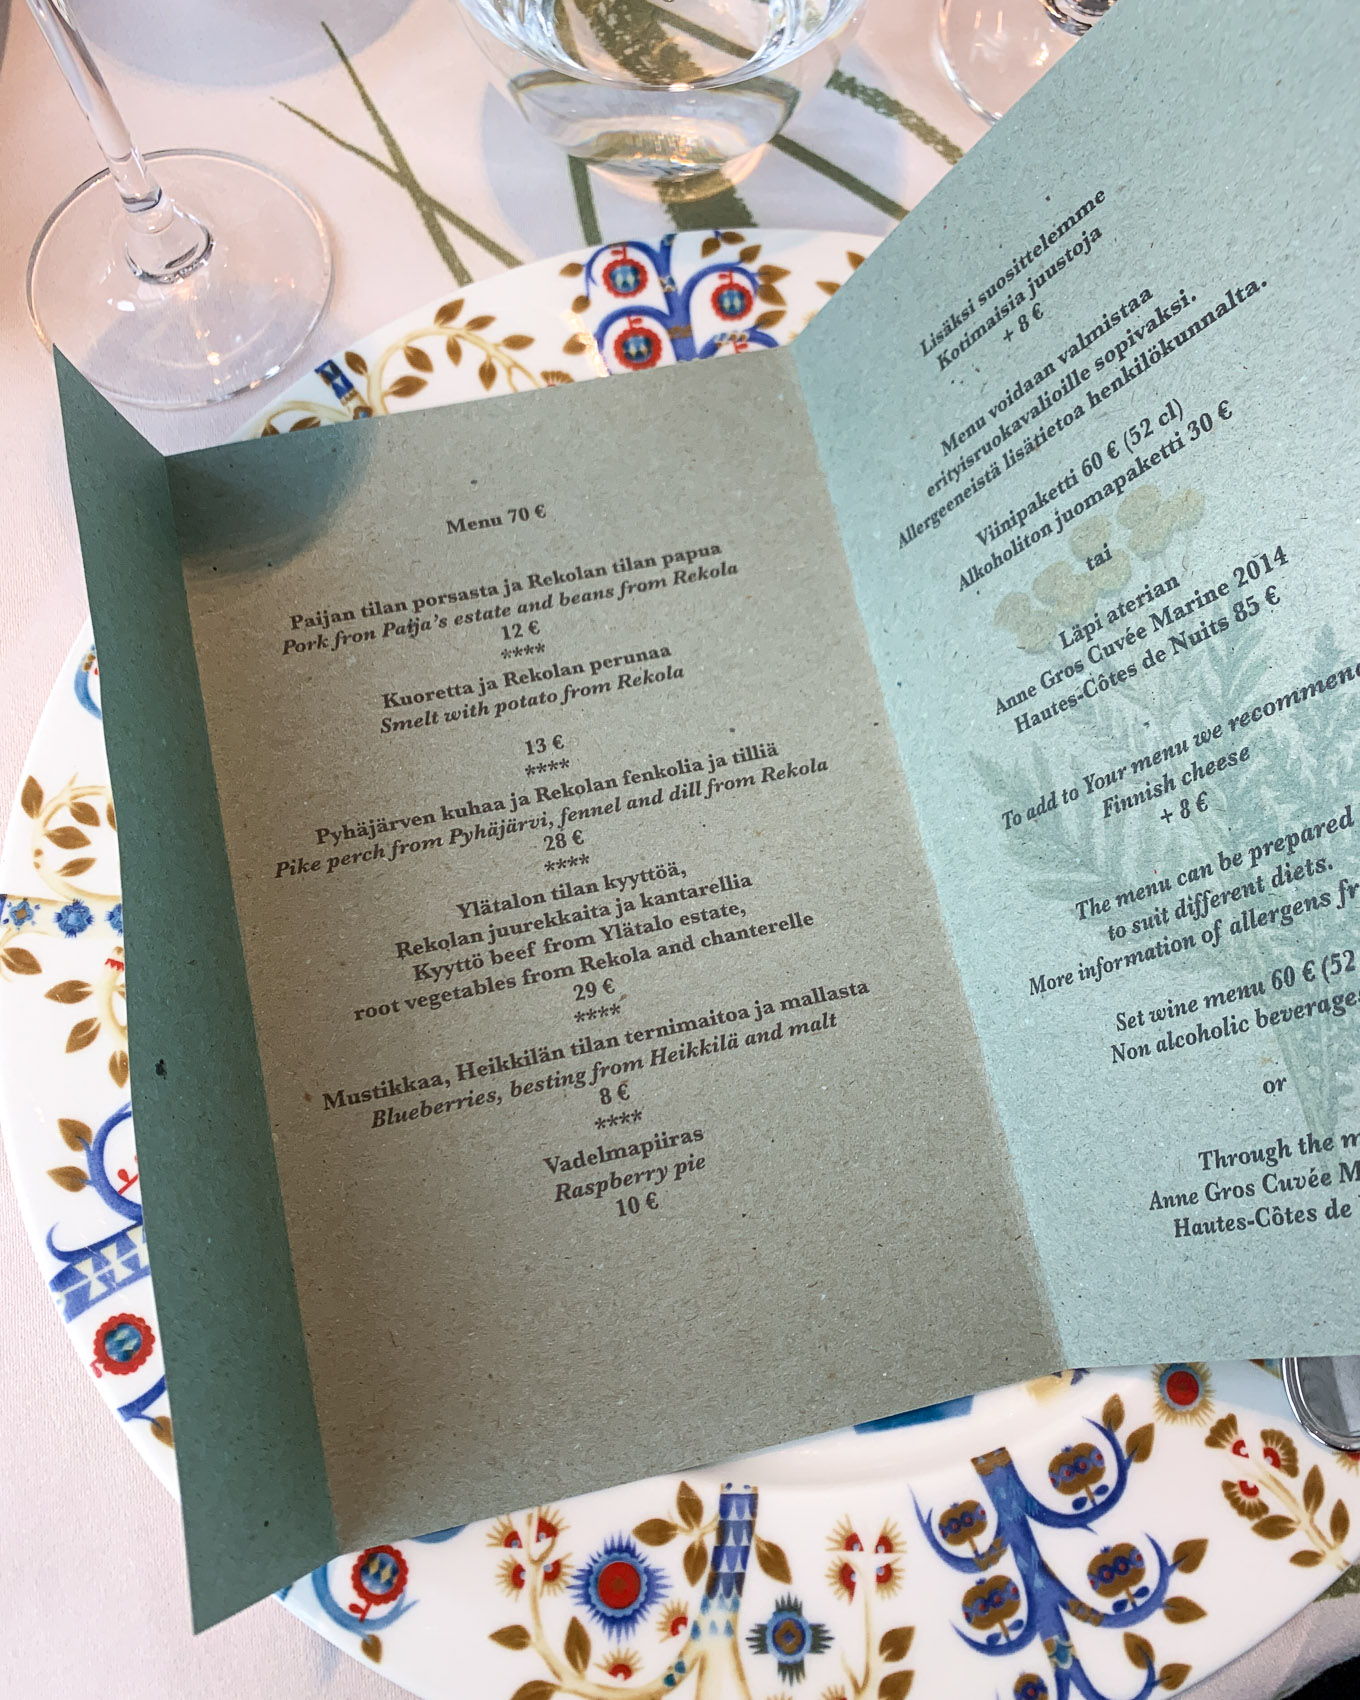 Menu 70 €
Paijan tilan porsasta ja Rekolan tilan papua
Pork fron Paija's estate and beans from Rekola
12 €
****
Kuoretta ja Rekolan perunaa
Smelt with potato from Rekola
13 €
****
Pyhäjärven kuhaa ja Rekolan fenkolia ja tilliä
Pike perch from Pyhäjärvi, fennel and dill from Rekola
28 €
****
Ylätalon tilan kyyttöä,
Rekolan juurekkaita ja kantarellia
Kyyttö beef from Ylätalo estate,
root vegetables from Rekola and chanterelle
29 €
****
Mustikkaa, Heikkilän tilan ternimaitoa ja mallasta
Blueberries, besting from Heikkilä and malt
8 €
****
Vadelmapiiras
Raspberry pie
10 €
Lisäksi suosittelemme
Kotimaisia juustoja
+ 8 €
Menu voidaan valmistaa
erityisruokavalioille sopivaksi.
Allergeeneistä lisätietoa henkilökunnalta.
Viinipaketti 60 € (52 cl)
Alkoholiton juomapaketti 30 €
tai
Läpi aterian
Anne Gros Cuvée Marine 2014
Hautes-Côtes de Nuits 85 €
To add to Your menu we recommend
Finnish cheese
+ 8 €
The menu can be prepared
to suit different diets.
More information of allergens fr
Set wine menu 60 € (52
Non alcoholic beverages
or
Through the m
Anne Gros Cuvée M
Hautes-Côtes de